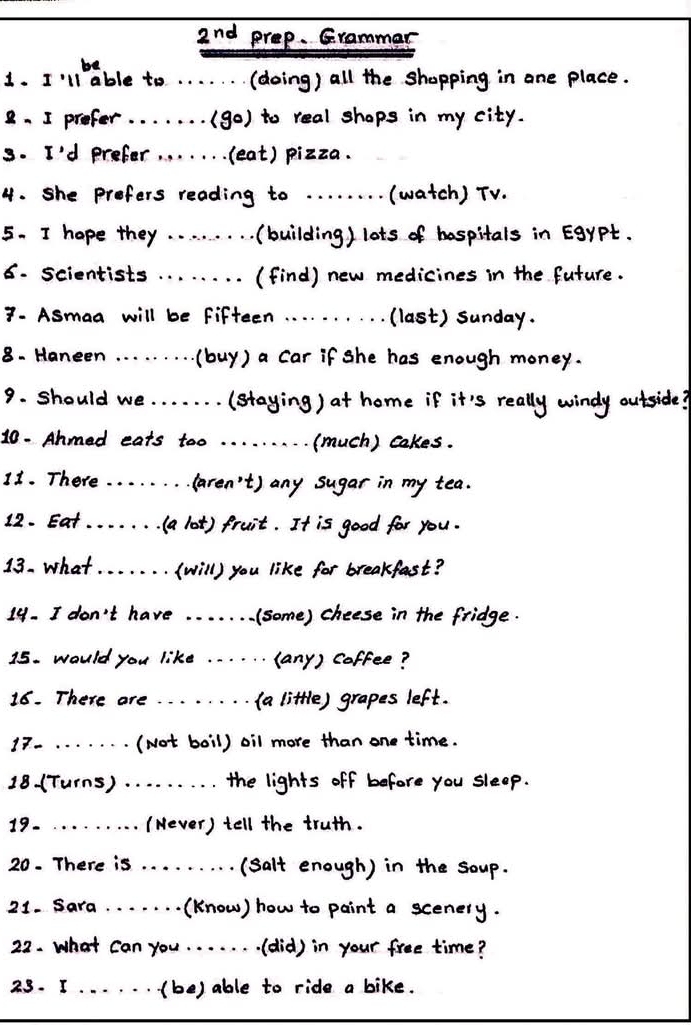 2nd prep. Grammar
1. I'll be able to ....... (doing) all the shopping in one place.
2. I prefer ........ (go) to real shops in my city.
3. I'd prefer ........ (eat) pizza.
4. She prefers reading to ........ (watch) TV.
5. I hope they ......... (building) lots of hospitals in Egypt.
6- Scientists ......... (find) new medicines in the future.
7- Asmaa will be fifteen ........... (last) Sunday.
8- Haneen ......... (buy) a car if she has enough money.
9. Should we ....... (staying) at home if it's really windy outside?
10- Ahmed eats too .......... (much) cakes.
11. There ......... (aren't) any sugar in my tea.
12- Eat ........ (a lot) fruit. It is good for you.
13- What ....... (will) you like for breakfast?
14- I don't have ........ (some) cheese in the fridge.
15- Would you like ...... (any) coffee?
16- There are ......... (a little) grapes left.
17- ....... (Not boil) oil more than one time.
18-(Turns) .......... the lights off before you sleep.
19- ......... (Never) tell the truth.
20- There is .......... (salt enough) in the soup.
21- Sara ........ (know) how to paint a scenery.
22- What can you ........ (did) in your free time?
23- I ........ (be) able to ride a bike.